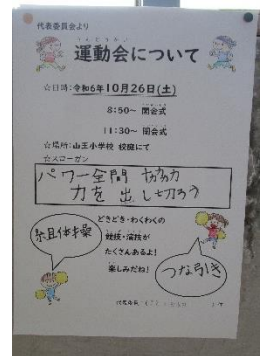 代表委員会より
うんどうかい
運動会について
☆日時：令和6年10月26日(土)
8:50～ 開会式
11:30～ 閉会式
☆場所：山王小学校 校庭にて
☆スローガン
パワー全開 協力
力を出し切ろう
どきどき・わくわくの
競技・演技が
たくさんあるよ！
楽しみだね！
組体操
つな引き